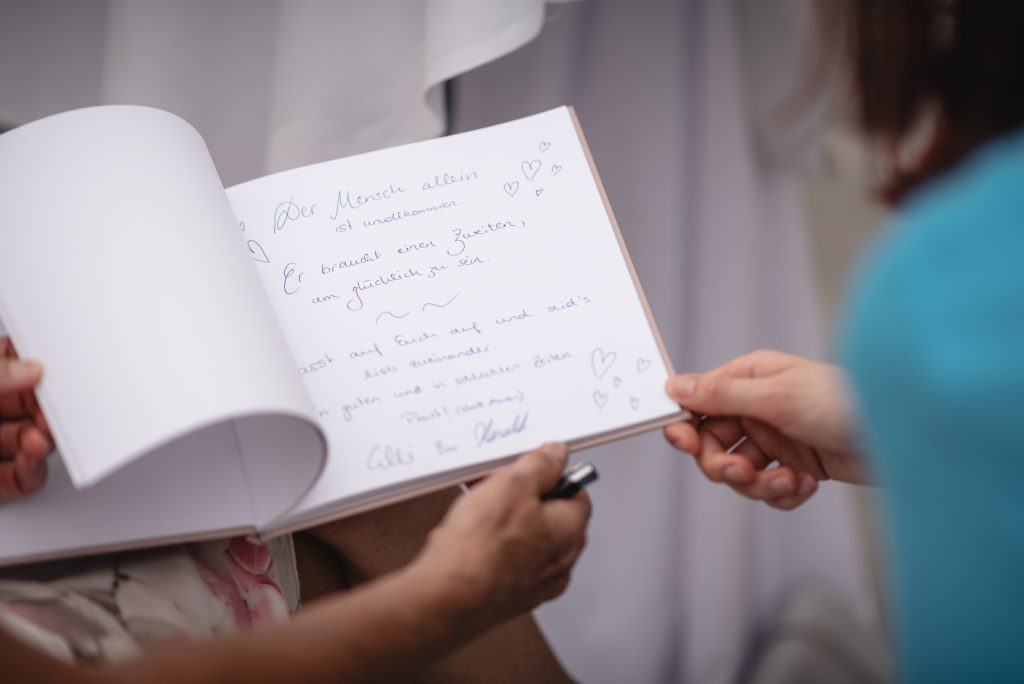 Der Mensch allein
ist unvollkommen.
Er braucht einen Zweiten,
um glücklich zu sein.
asst auf Euch auf und seid's
lieb zueinander.
n guten und in schlechten Zeiten.
Prost!
Harald